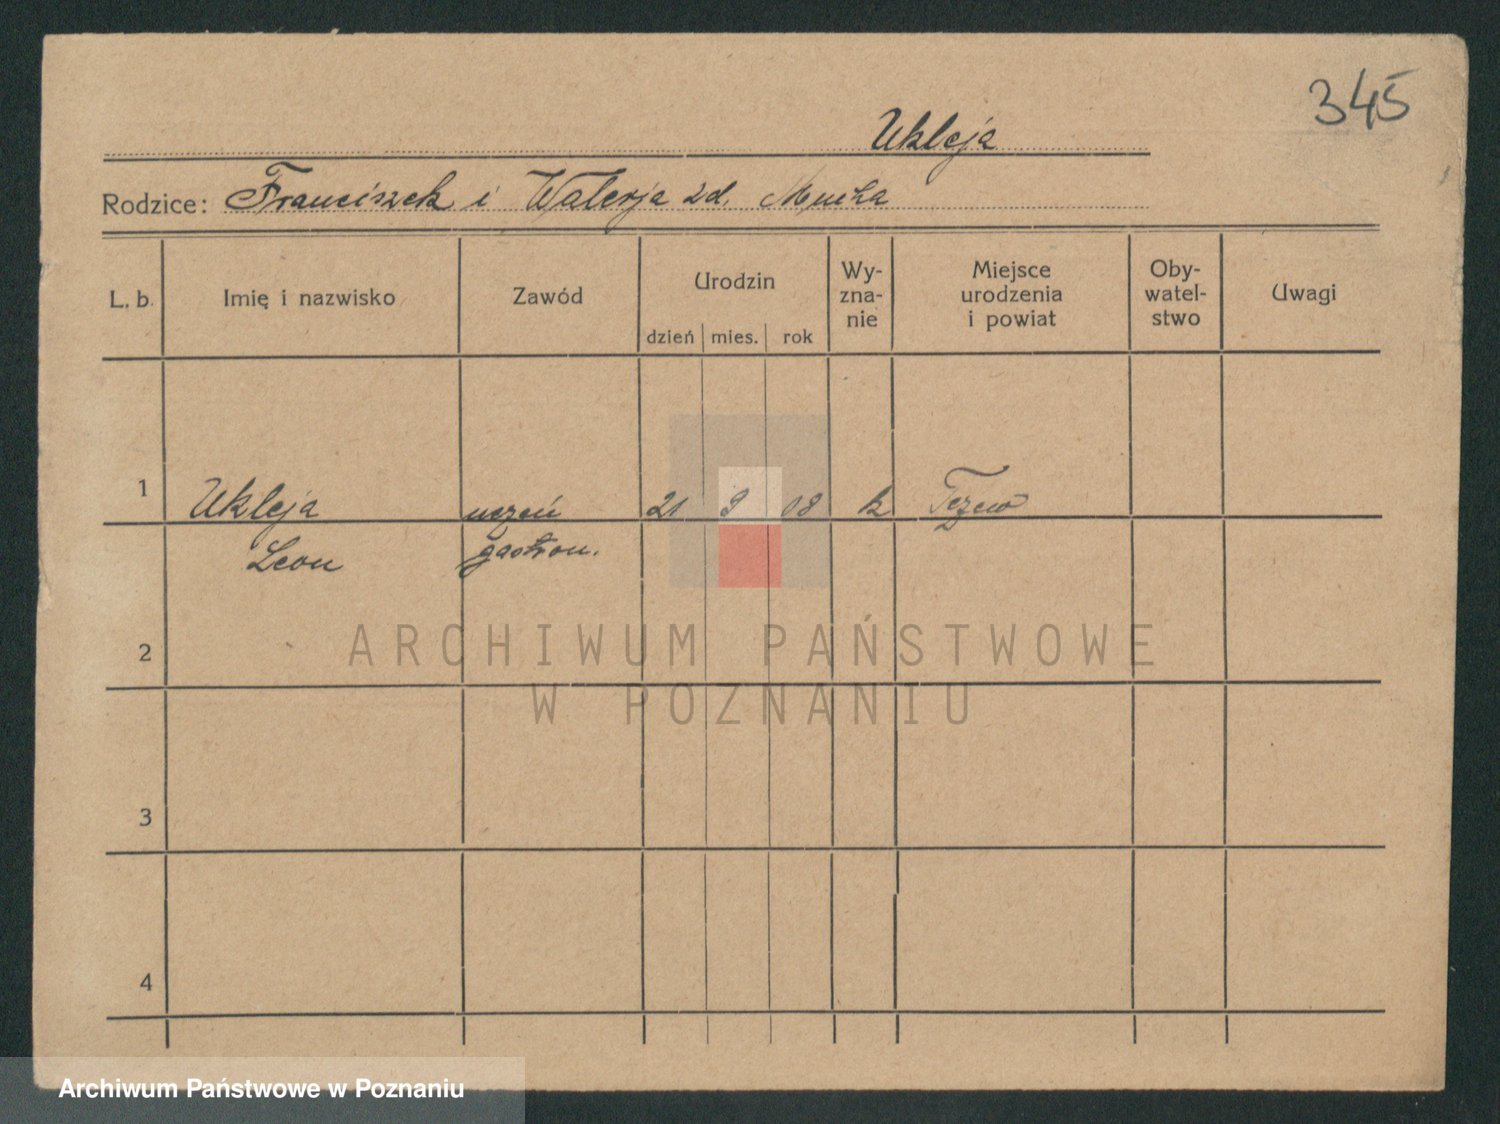 345
Ukleja
Rodzice: Franciszek i Walerja zd. Mucha
L. b. Imię i nazwisko Zawód Urodzin dzień mies. rok Wy-zna-nie Miejsce urodzenia i powiat Oby-watel-stwo Uwagi
1 Ukleja uczeń 21 9 08 k Tczew
Leon gastron.
2
3
4
ARCHIWUM PAŃSTWOWE
W POZNANIU
Archiwum Państwowe w Poznaniu